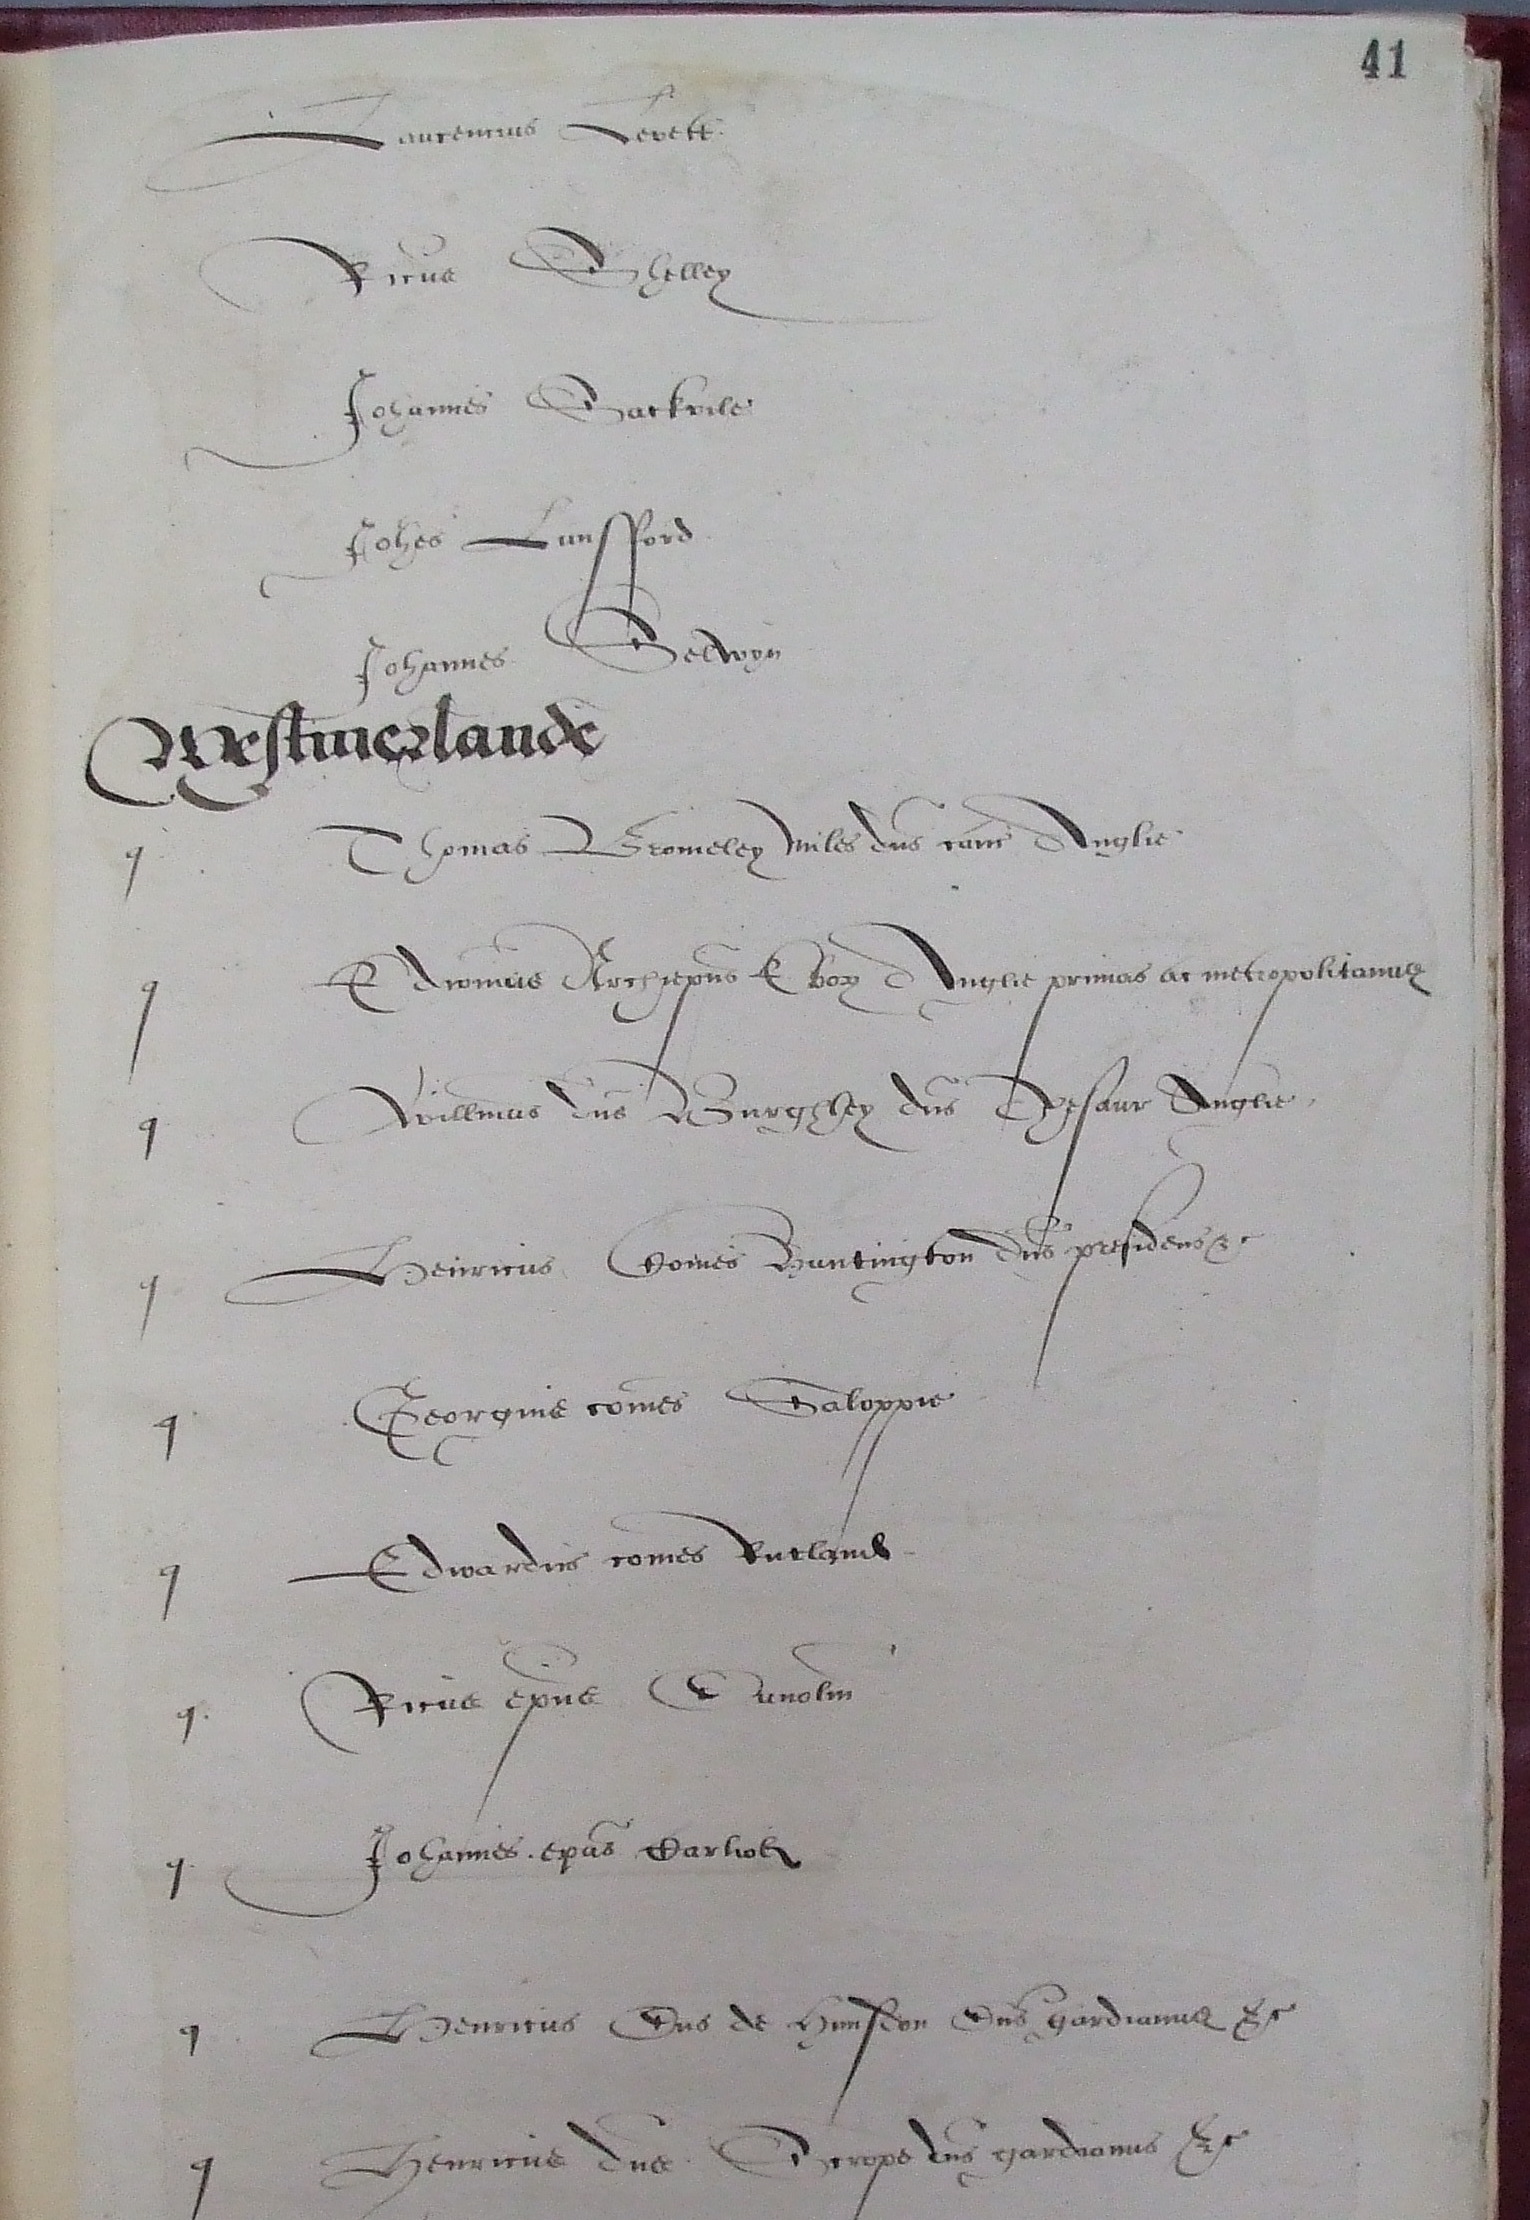 41
Laurencius Levett
Ricus Shelley
Johannes Sackvile
Johes Lunsfford
Johannes Selwyn
Westmerlande
q Thomas Bromeley miles dns canc Anglie
q Edwinus Archiepus Ebor Anglie primas ac metropolitanus
q Willmus dns Burghley dns Thesaur Anglie
q Henricus Comes Huntington dns presidens &c
q Georgius comes Saloppie
q Edwardus comes Rutland
q Ricus epus Dunolm
q Johannes epus Carliol
q Henricus Dns de Hunsdon Dns gardianus &c
q Henricus dns Scrope dns gardianus &c